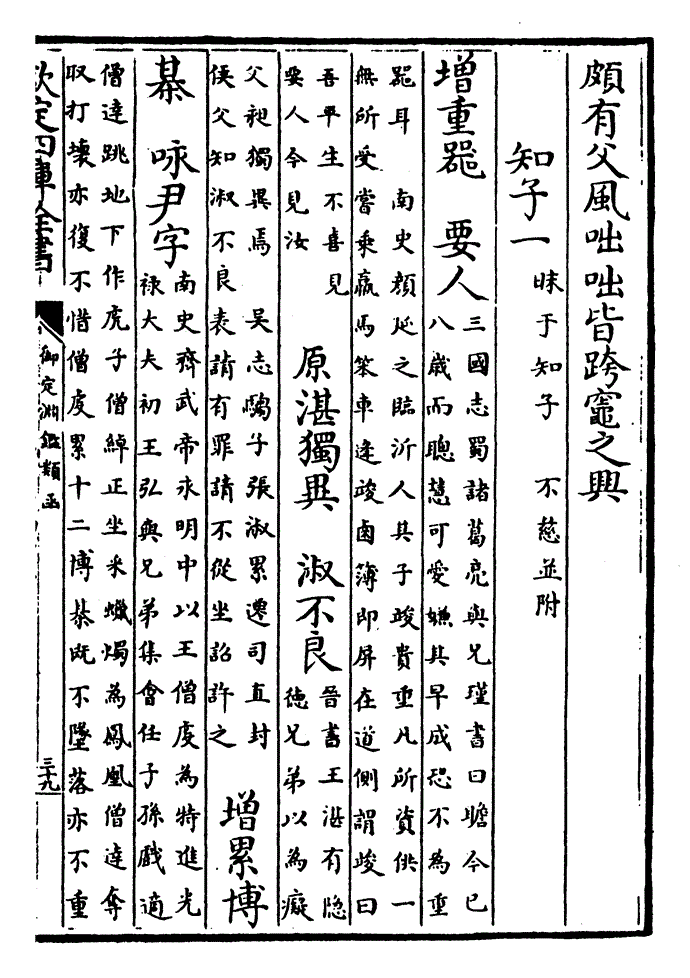 頗有父風咄咄皆跨竈之興
知子一 昧于知子 不慈並附
增重器 要人 三國志蜀諸葛亮與兄瑾書曰瞻今已
八歲而聰慧可愛嫌其早成恐不為重
器耳 南史顔延之臨沂人其子竣貴重凡所資供一
無所受嘗乗羸馬笨車逢竣鹵簿即屏在道側謂竣曰
吾平生不喜見
要人今見汝
原湛獨異 淑不良 晉書王湛有隠
德兄弟以為癡
父昶獨異焉 吳志子張淑累遷司直封
侯父知淑不良表請有罪請不從坐詔許之
增累博
棊 咏尹字 南史齊武帝永明中以王僧虔為特進光
禄大夫初王弘與兄弟集會任子孫戲適
僧達跳地下作虎子僧綽正坐采蠟燭為鳳凰僧達奪
取打壞亦復不惜僧虔累十二博棊既不墜落亦不重
欽定四庫全書
御定淵鑑類函
三十九